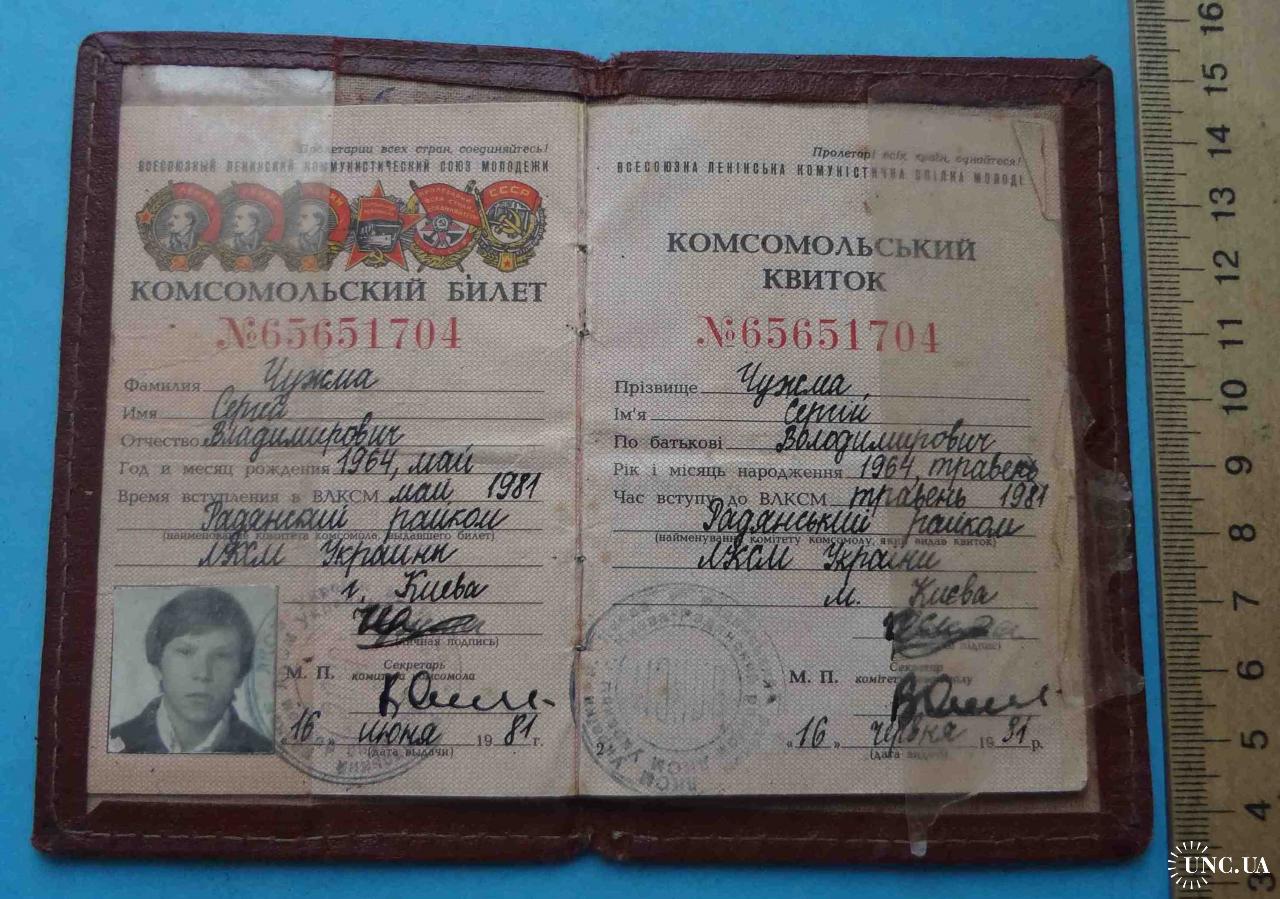 Пролетарии всех стран, соединяйтесь!
ВСЕСОЮЗНЫЙ ЛЕНИНСКИЙ КОММУНИСТИЧЕСКИЙ СОЮЗ МОЛОДЕЖИ
ЛЕНИН ЛЕНИН ЛЕНИН
СССР
КОМСОМОЛЬСКИЙ БИЛЕТ
№65651704
Фамилия Чужма
Имя Сергей
Отчество Владимирович
Год и месяц рождения 1964, май
Время вступления в ВЛКСМ май 1981
Радянский райком
(наименование комитета комсомола, выдавшего билет)
ЛКСМ Украины
г. Киева
(личная подпись)
М. П. Секретарь
комитета комсомола
"16" июня 1981 г.
(дата выдачи)
Пролетарі всіх країн, єднайтеся!
ВСЕСОЮЗНА ЛЕНІНСЬКА КОМУНІСТИЧНА СПІЛКА МОЛОДІ
КОМСОМОЛЬСЬКИЙ
КВИТОК
№65651704
Прізвище Чужма
Ім'я Сергій
По батькові Володимирович
Рік і місяць народження 1964, травень
Час вступу до ВЛКСМ травень 1981
Радянський райком
(найменування комітету комсомолу, який видав квиток)
ЛКСМ України
м. Києва
(особистий підпис)
М. П. Секретар
комітету комсомолу
2 "16" червня 1981 р.
(дата видачі)
16
15
14
13
12
11
10
9
8
7
6
5
4
3
UNC.UA